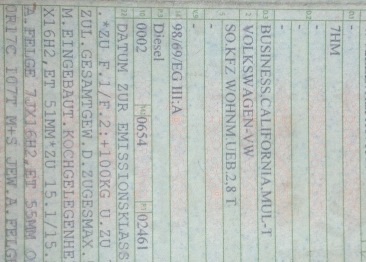 7HM
-
-
BUSINESS.CALIFORNIA.MUL-T
VOLKSWAGEN-VW
SO.KFZ.WOHNM.UEB.2,8 T
-
-
98/69/EG III;A
Diesel
0002 0654 02461
DATUM ZUR EMISSIONSKLASS
.*ZU F.1/F.2:+100KG U.ZU
ZUL.GESAMTGEW D.ZUGESMAX.
M.EINGEBAUT.KOCHGELEGENHE
X16H2,ET 51MM*ZU 15.1/15.
FELGE 7JX16H2,ET 55MM O
107T M+S JEW.A.FELG